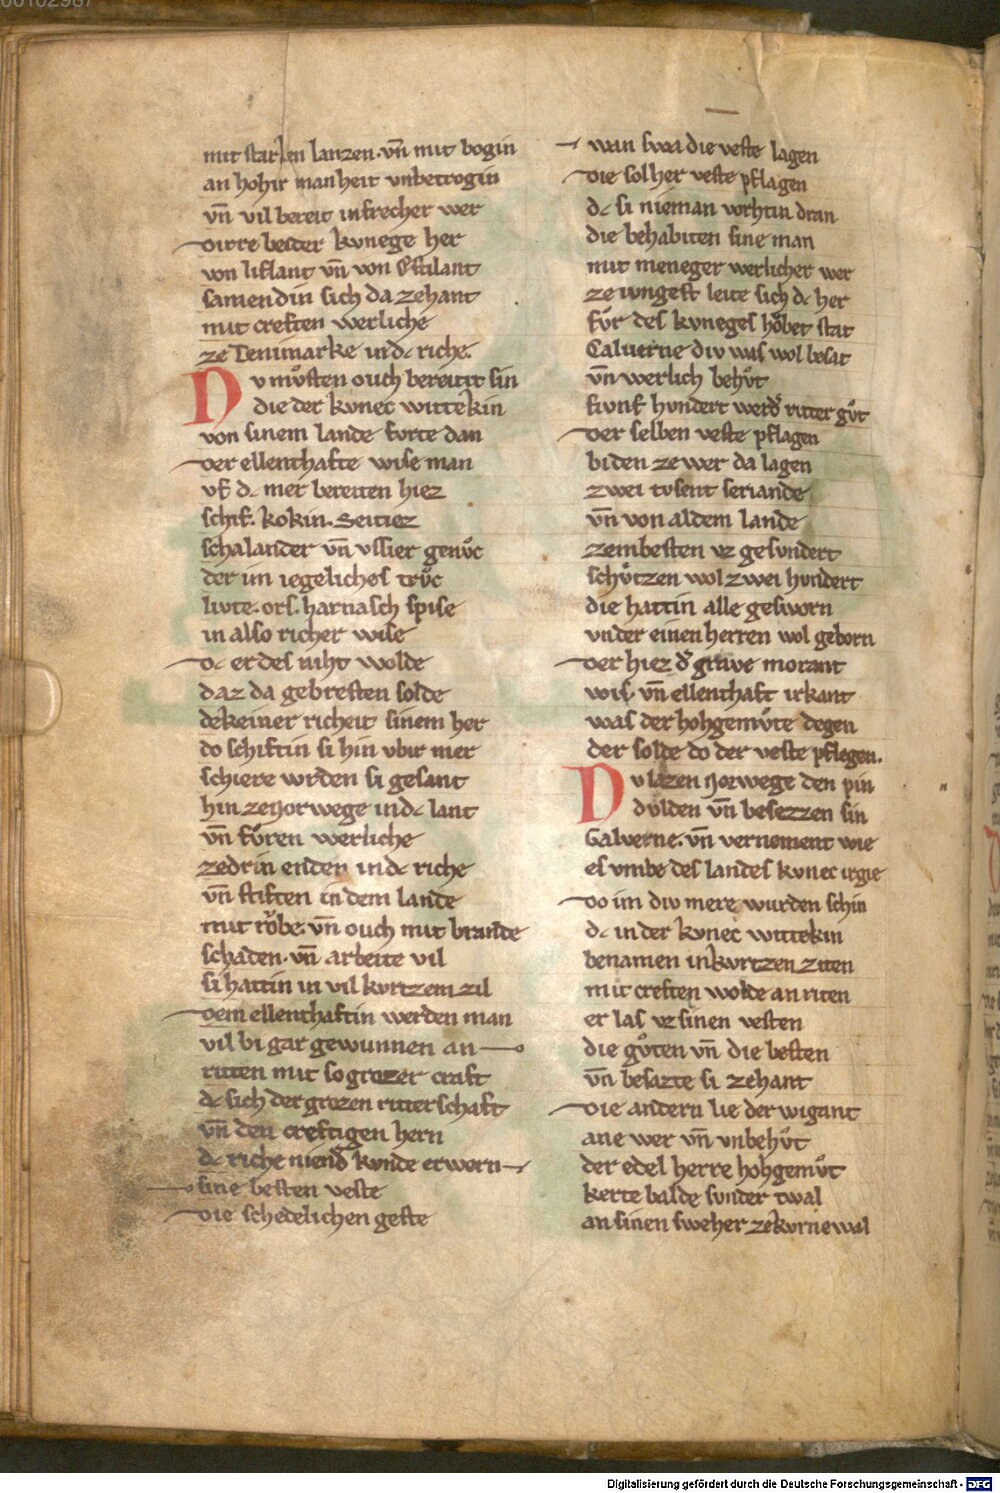 mit starken lanzen. vn̄ mit bogin
an hohir manheit vnbetrogin
vn̄ vil bereit in frecher wer
dirre beider kvnege her
von liflant vn̄ von Estilant
samendin sich da zehant
mit creften werliche
ze Tenimarke in dc riche.
Nv mv̊sten ouch bereitit sin
die der kvnec wittekin
von sinem lande fvrte dan
der ellenthafte wise man
vf dc mer bereiten hiez
schif. kokin. Seitiez
schalander vn̄ vssier genv̊c
der im iegeliches trv̊c
livte. ors. harnasch spise
in also richer wise
dc er des niht wolde
daz da gebresten solde
dekeiner richeit sinem her
do schiftin si hin vbir mer
schiere wrden si gesant
hin ze Norwege in dc lant
vn̄ fv̊ren werliche
zedrin enden in dc riche
vn̄ stiften in dem lande
mit rŏbe. vn̄ ouch mit brande
schaden. vn̄ arbeite vil
si hattin in vil kvrtzem zil
dem ellenthaftin werden man
vil bi gar gewunnen an
ritten mit so grozer craft
dc sich der grozen ritterschaft
vn̄ den creftigen hern
dc riche niend̓ kvnde erwern
sine besten veste
die schedelichen geste
wan swa die veste lagen
die solher veste pflagen
dc si nieman vorhtin dran
die behabiten sine man
mit meneger werlicher wer
ze iungest leite sich dc her
fv̊r des kvneges hŏbet stat
Galverne div was wol besat
vn̄ werlich behv̊t
fivnf hvndert werd̓ ritter gv̊t
der selben veste pflagen
bi den ze wer da lagen
zwei tvsent seriande
vn̄ von al dem lande
zem besten vz gesvndert
schv̊tzen wol zwei hvndert
die hattin alle gesworn
vnder einen herren wol geborn
der hiez d̓ grave morant
wis. vn̄ ellenthaft irkant
was der hohgemv̊te degen
der solde do der veste pflegen.
Nv lazen Norwege den pin
dvlden vn̄ besezzen sin
Galverne. vn̄ vernement wie
es vmbe des landes kvnec irgie
do im div mere wurden schin
dc in der kvnec wittekin
benamen in kvrtzen ziten
mit creften wolde an riten
er las vz sinen vesten
die gv̊ten vn̄ die besten
vn̄ besazte si zehant
die andern lie der wigant
ane wer vn̄ vnbehv̊t
der edel herre hohgemv̊t
kerte balde svnder twal
an sinen sweher ze kvrnewal
Digitalisierung gefördert durch die Deutsche Forschungsgemeinschaft - DFG